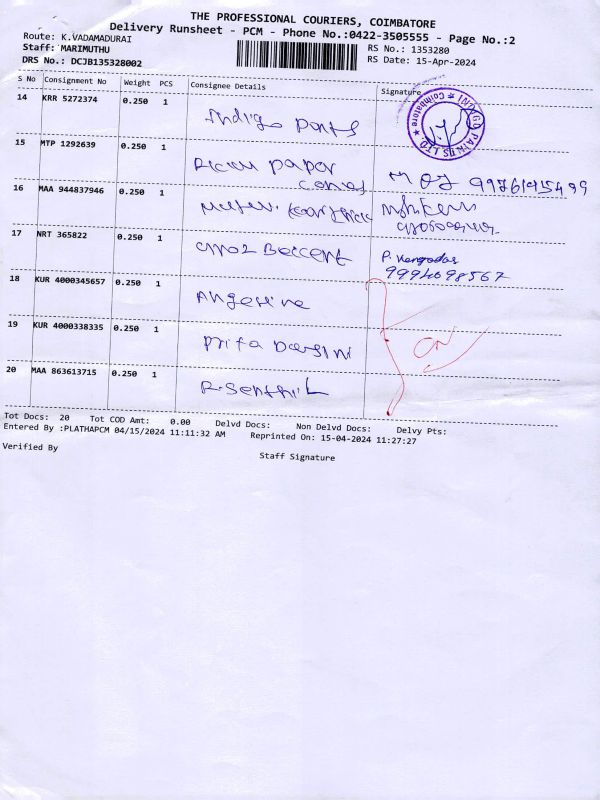 THE PROFESSIONAL COURIERS, COIMBATORE
Delivery Runsheet - PCM - Phone No.:0422-3505555 - Page No.:2
Route: K.VADAMADURAI
RS No.: 1353280
Staff: MARIMUTHU
RS Date: 15-Apr-2024
DRS No.: DCJB135328002
S No Consignment No Weight PCS Consignee Details Signature
14 KRR 5272374 0.250 1
Indigo Paints
INDIGO PAINTS LTD. * Coimbatore *
15 MTP 1292639 0.250 1
paper
16 MAA 944837946 0.250 1
17 NRT 365822 0.250 1
9994098567
18 KUR 4000345657 0.250 1
Angeline
19 KUR 4000338335 0.250 1
20 MAA 863613715 0.250 1
R. Senthil
Tot Docs: 20 Tot COD Amt: 0.00 Delvd Docs: Non Delvd Docs: Delvy Pts:
Entered By :PLATHAPCM 04/15/2024 11:11:32 AM Reprinted On: 15-04-2024 11:27:27
Verified By
Staff Signature